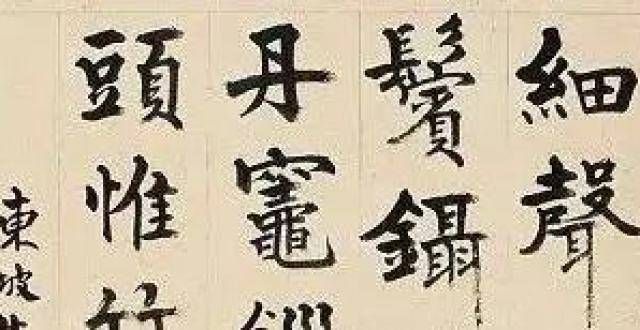 細聲
鬢鑷
丹竈
頭惟竹
東坡